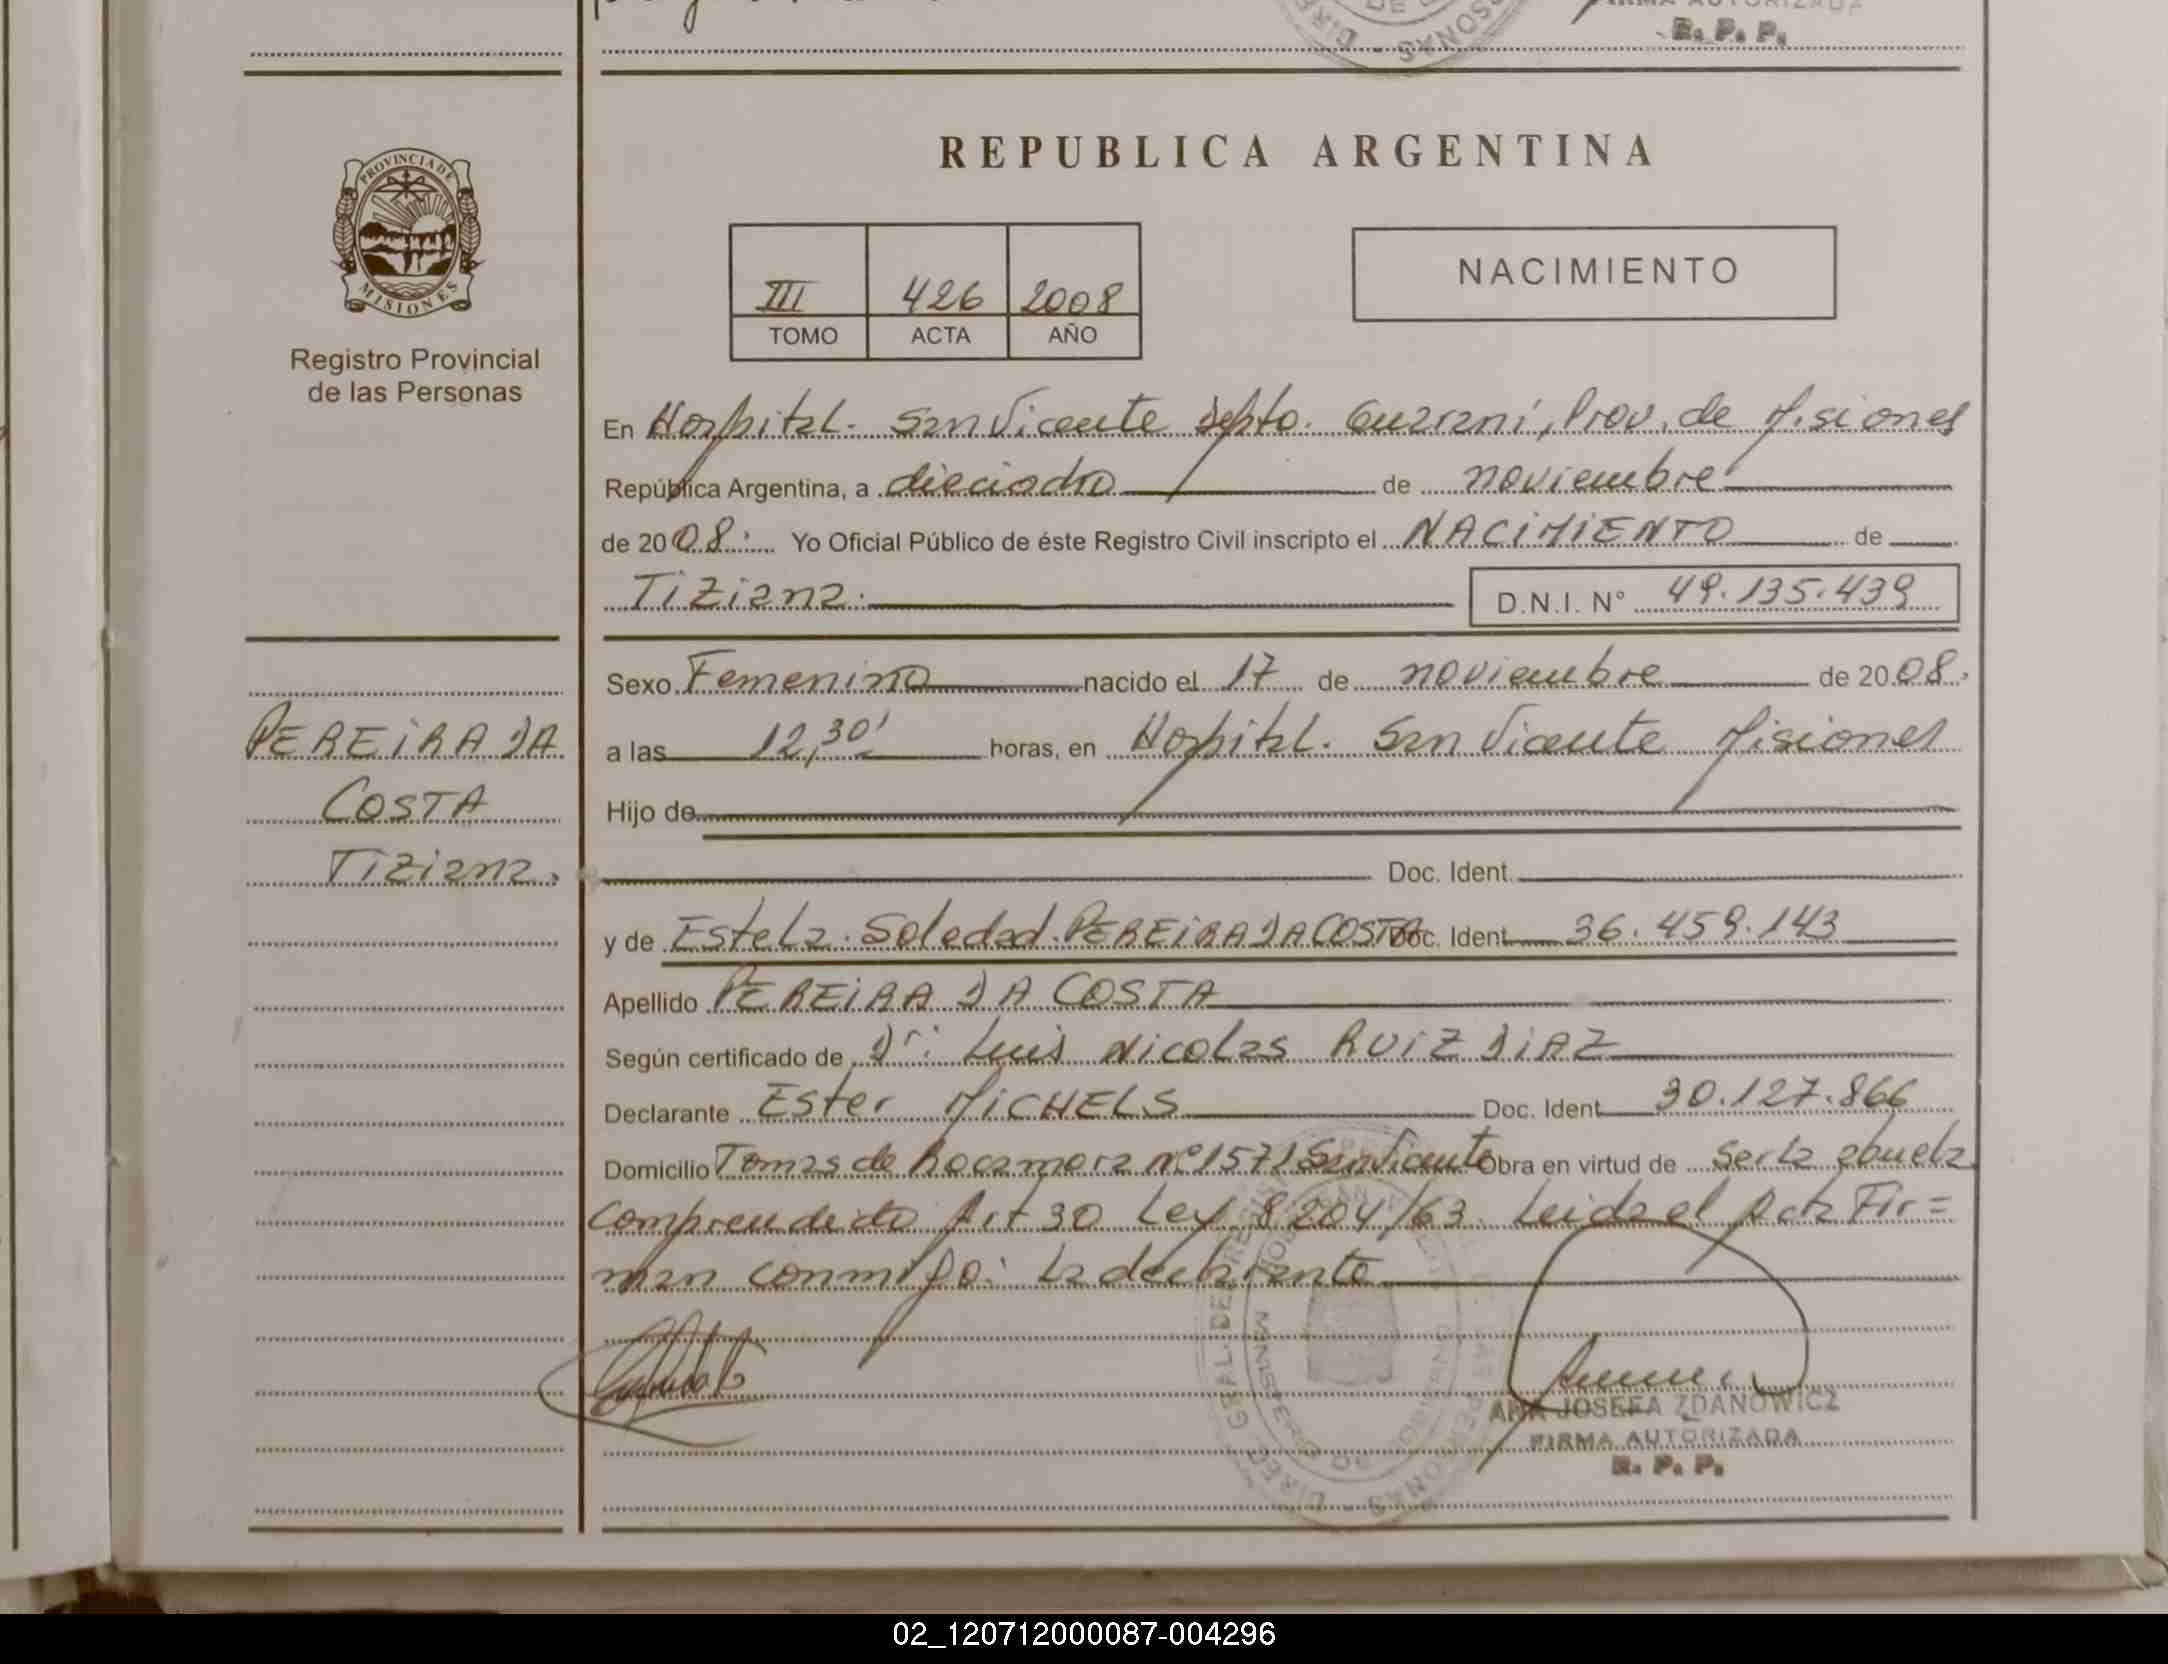 R. P. P.
PROVINCIA DE
MISIONES
Registro Provincial
de las Personas
REPUBLICA ARGENTINA
III 426 2008
TOMO ACTA AÑO
NACIMIENTO
En Hospital. San Vicente Depto. Guarani, Prov. de Misiones
República Argentina, a dieciocho de noviembre
de 2008. Yo Oficial Público de éste Registro Civil inscripto el NACIMIENTO de
Tiziana. D.N.I. N° 49.135.439
Sexo Femenino nacido el 17 de noviembre de 2008.
PEREIRA DA
a las 12,30' horas, en Hospital. San Vicente Misiones
COSTA
Hijo de
Tiziana.
Doc. Ident.
y de Estela. Soledad. PEREIRA DA COSTA Doc. Ident. 36.459.143
Apellido PEREIRA DA COSTA
Según certificado de Dr: Luis Nicolas RUIZ DIAZ
Declarante Ester MICHELS Doc. Ident. 30.127.866
Domicilio Tomas de Rocamora N° 1571 San Vicente Obra en virtud de ser la abuela
comprendido Art 30 Ley 8204/63. Leida el Acta Fir=
man conmigo: la declarante
ANA JOSEFA ZDANOWICZ
FIRMA AUTORIZADA
R. P. P.
02_120712000087-004296